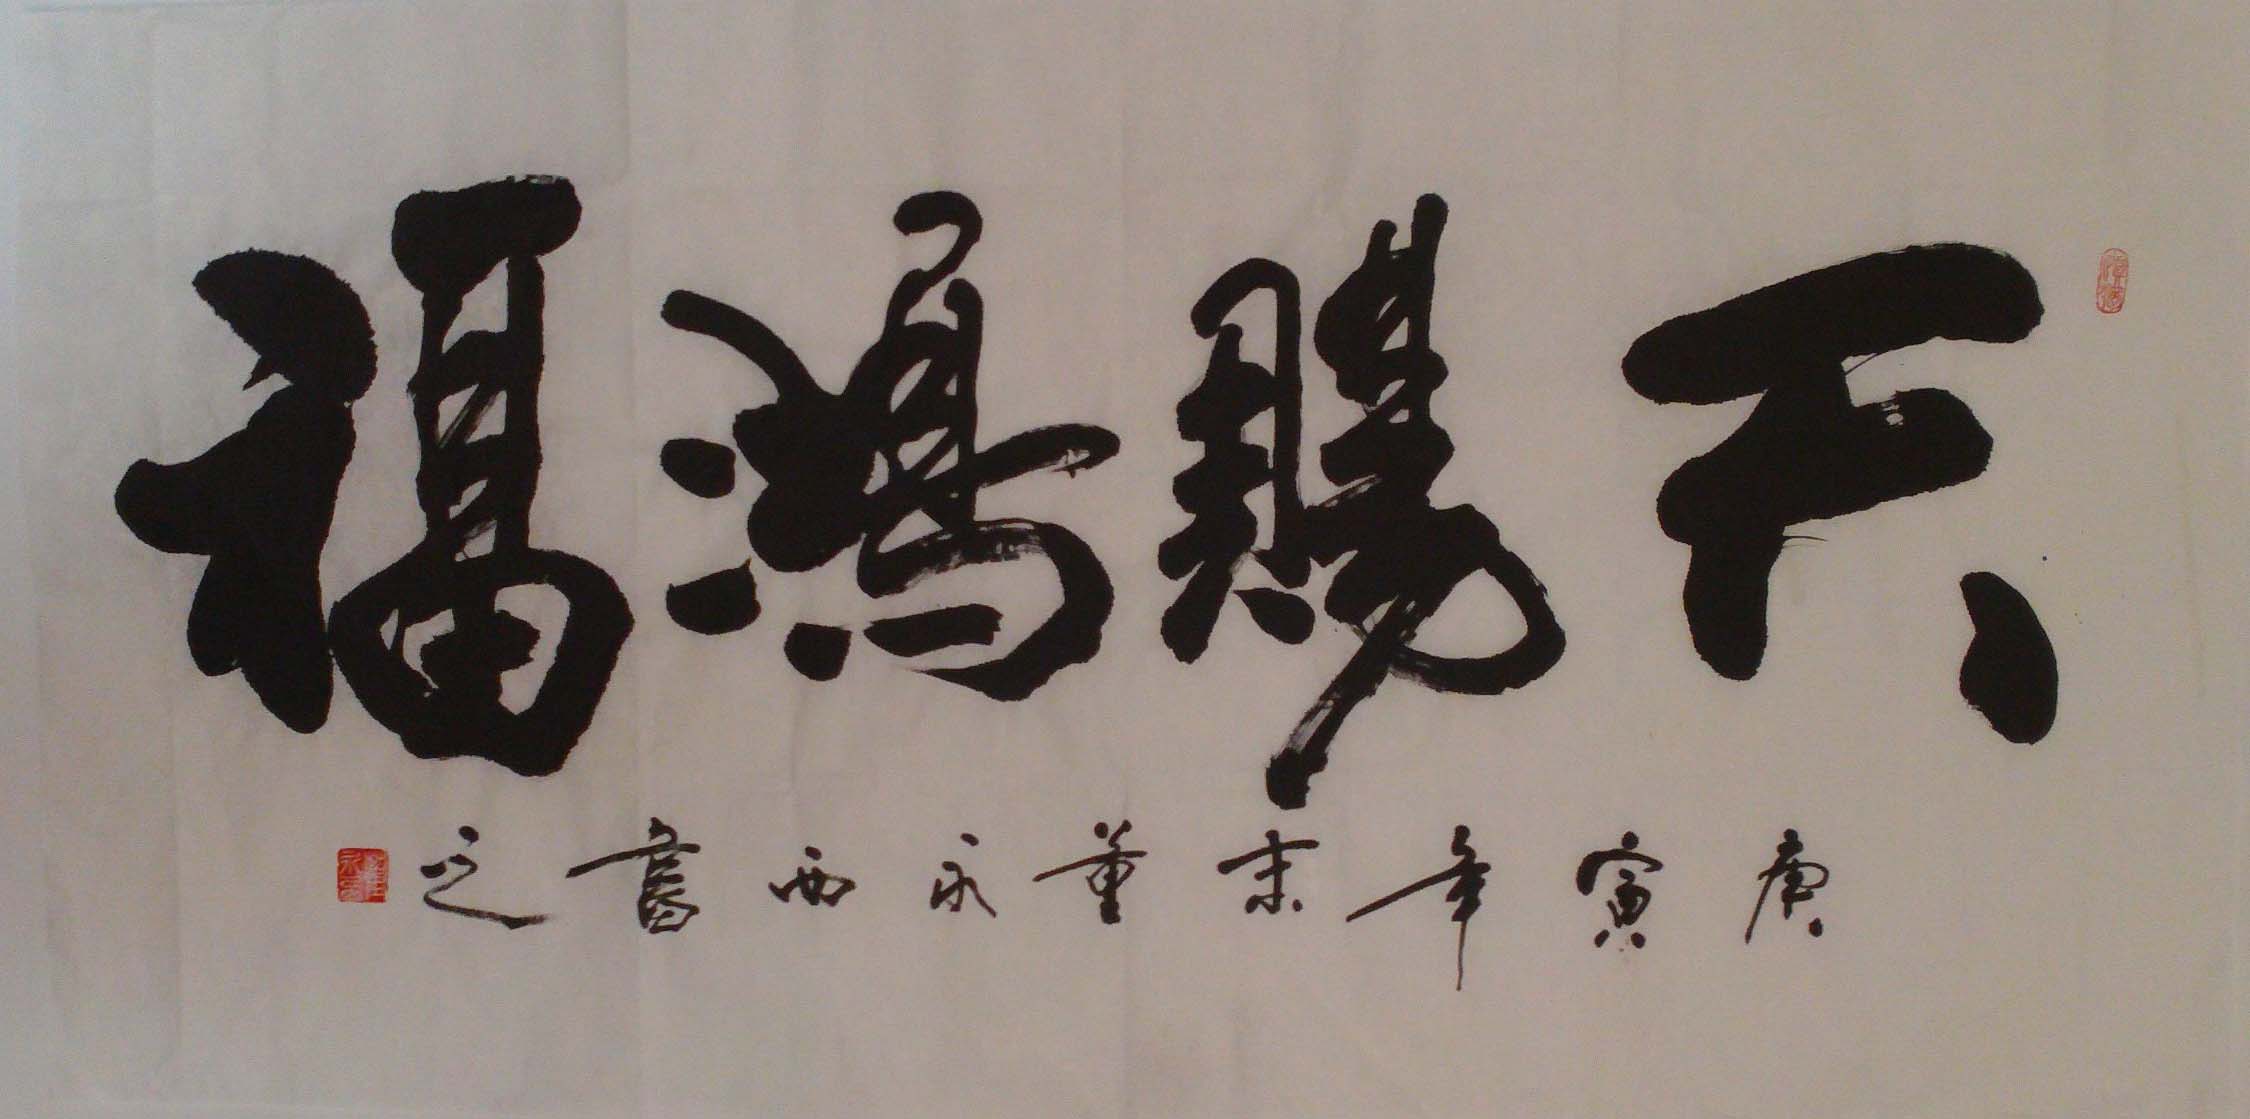 天賜鴻福
庚寅年末董永西書之